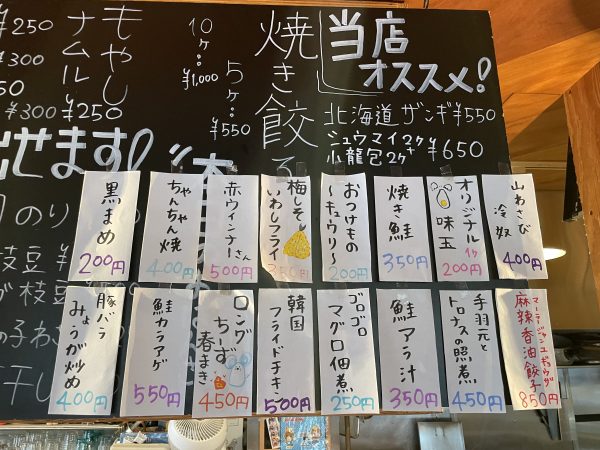 当店
オススメ!
北海道 ザンギ ¥550
シュウマイ2ケ+
小龍包2ケ ¥650
焼き餃子
5ケ…
¥550
10ケ…
¥1,000
もやし
ナムル
¥250
¥250
¥300
出せます!
のり
枝豆
枝豆
山わさび
冷奴
400円
オリジナル
味玉
1ケ
200円
焼き鮭
350円
おつけもの
〜キュウリ〜
200円
梅しそ
いわしフライ
350円
赤ウインナーさん
500円
ちゃんちゃん焼
400円
黒まめ
200円
マーラージャンユギョウザ
麻辣香油餃子
850円
手羽元と
トロナスの照煮
450円
鮭アラ汁
350円
ゴロゴロ
マグロ佃煮
250円
韓国
フライドチキン
500円
ロング
ちーず
春まき
450円
鮭カラアゲ
550円
豚バラ
みょうが炒め
400円